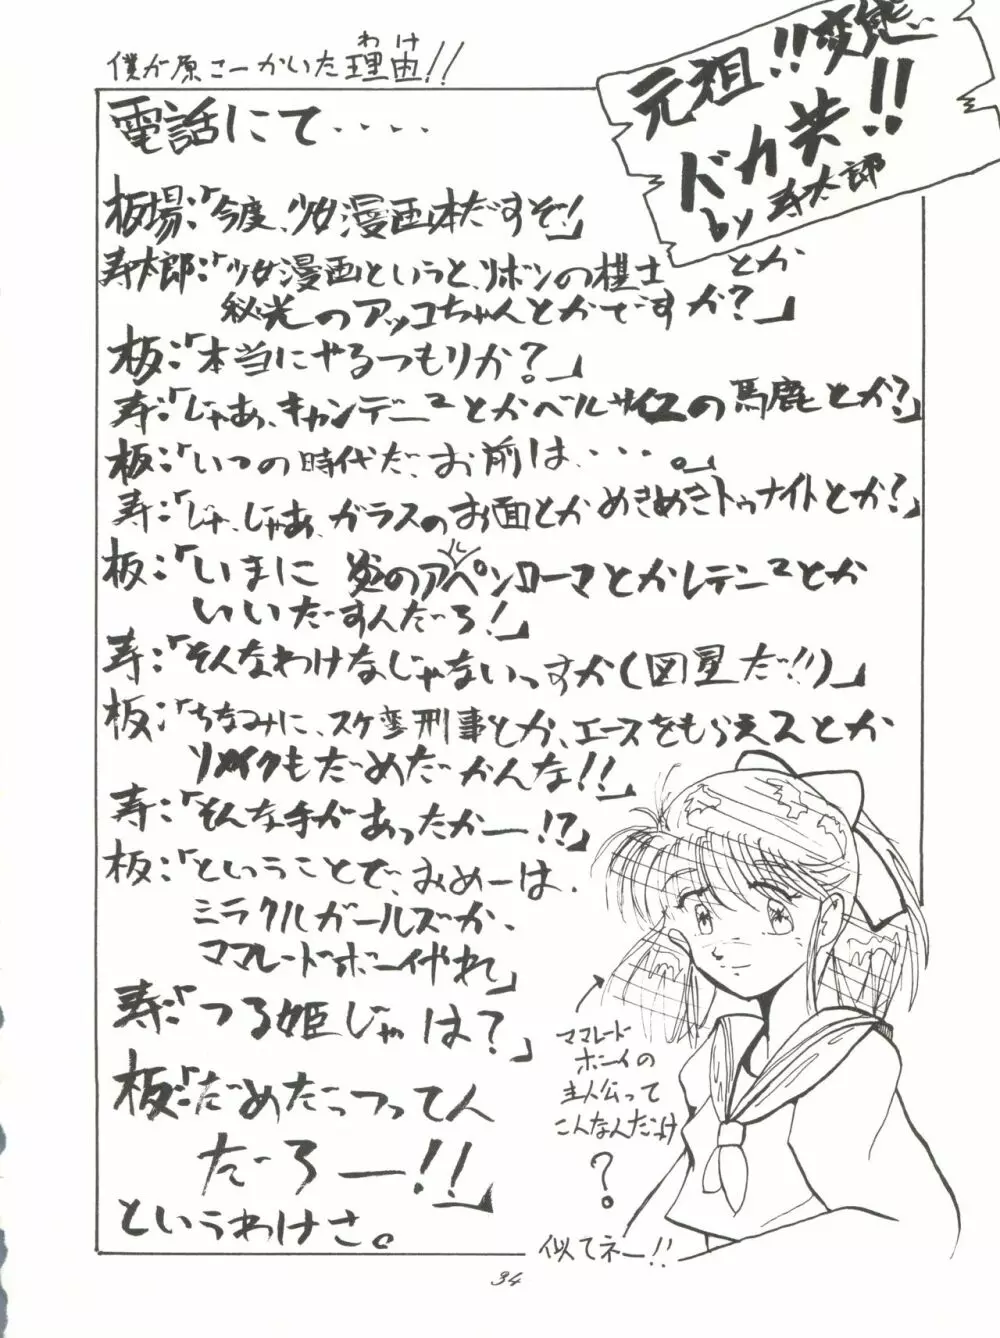 僕が原こーかいた理由!!
わけ
元祖!!変態
ドカ
by 寿太郎
電話にて‥‥
板場:「今度、少女漫画本だすぞ!」
寿太郎:「少女漫画というと、リボンの棋士とか
秘光のアッコちゃんとかですか?」
板:「本当にやるつもりか?」
寿:「じゃあ、キャンデーマとかベルサイユの馬鹿とか?」
板:「いつの時代だ、お前は‥‥。」
寿:「じゃ、じゃあ、ガラスのお面とかめきめきトゥナイトとか?」
板:「いまに 炎のアルペンローマとかレテニマとか
いいだすんだろ!」
寿:「そんなわけなじゃないっすか(図星だ!!)」
板:「ちなみに、スケ変刑事とか、エースをもらえ2とか
リメイクもだめだかんな!!」
寿:「そんな手があったかー!?」
板:「ということで、おめーは、
ミラクルガールズか、
ママレードボーイやれ」
寿:「つる姫じゃは?」
板:「だめだっつってん
だろー!!」
というわけさ。
ママレード
ボーイの
主人公って
こんなんだっけ
?
似てネー!!
34